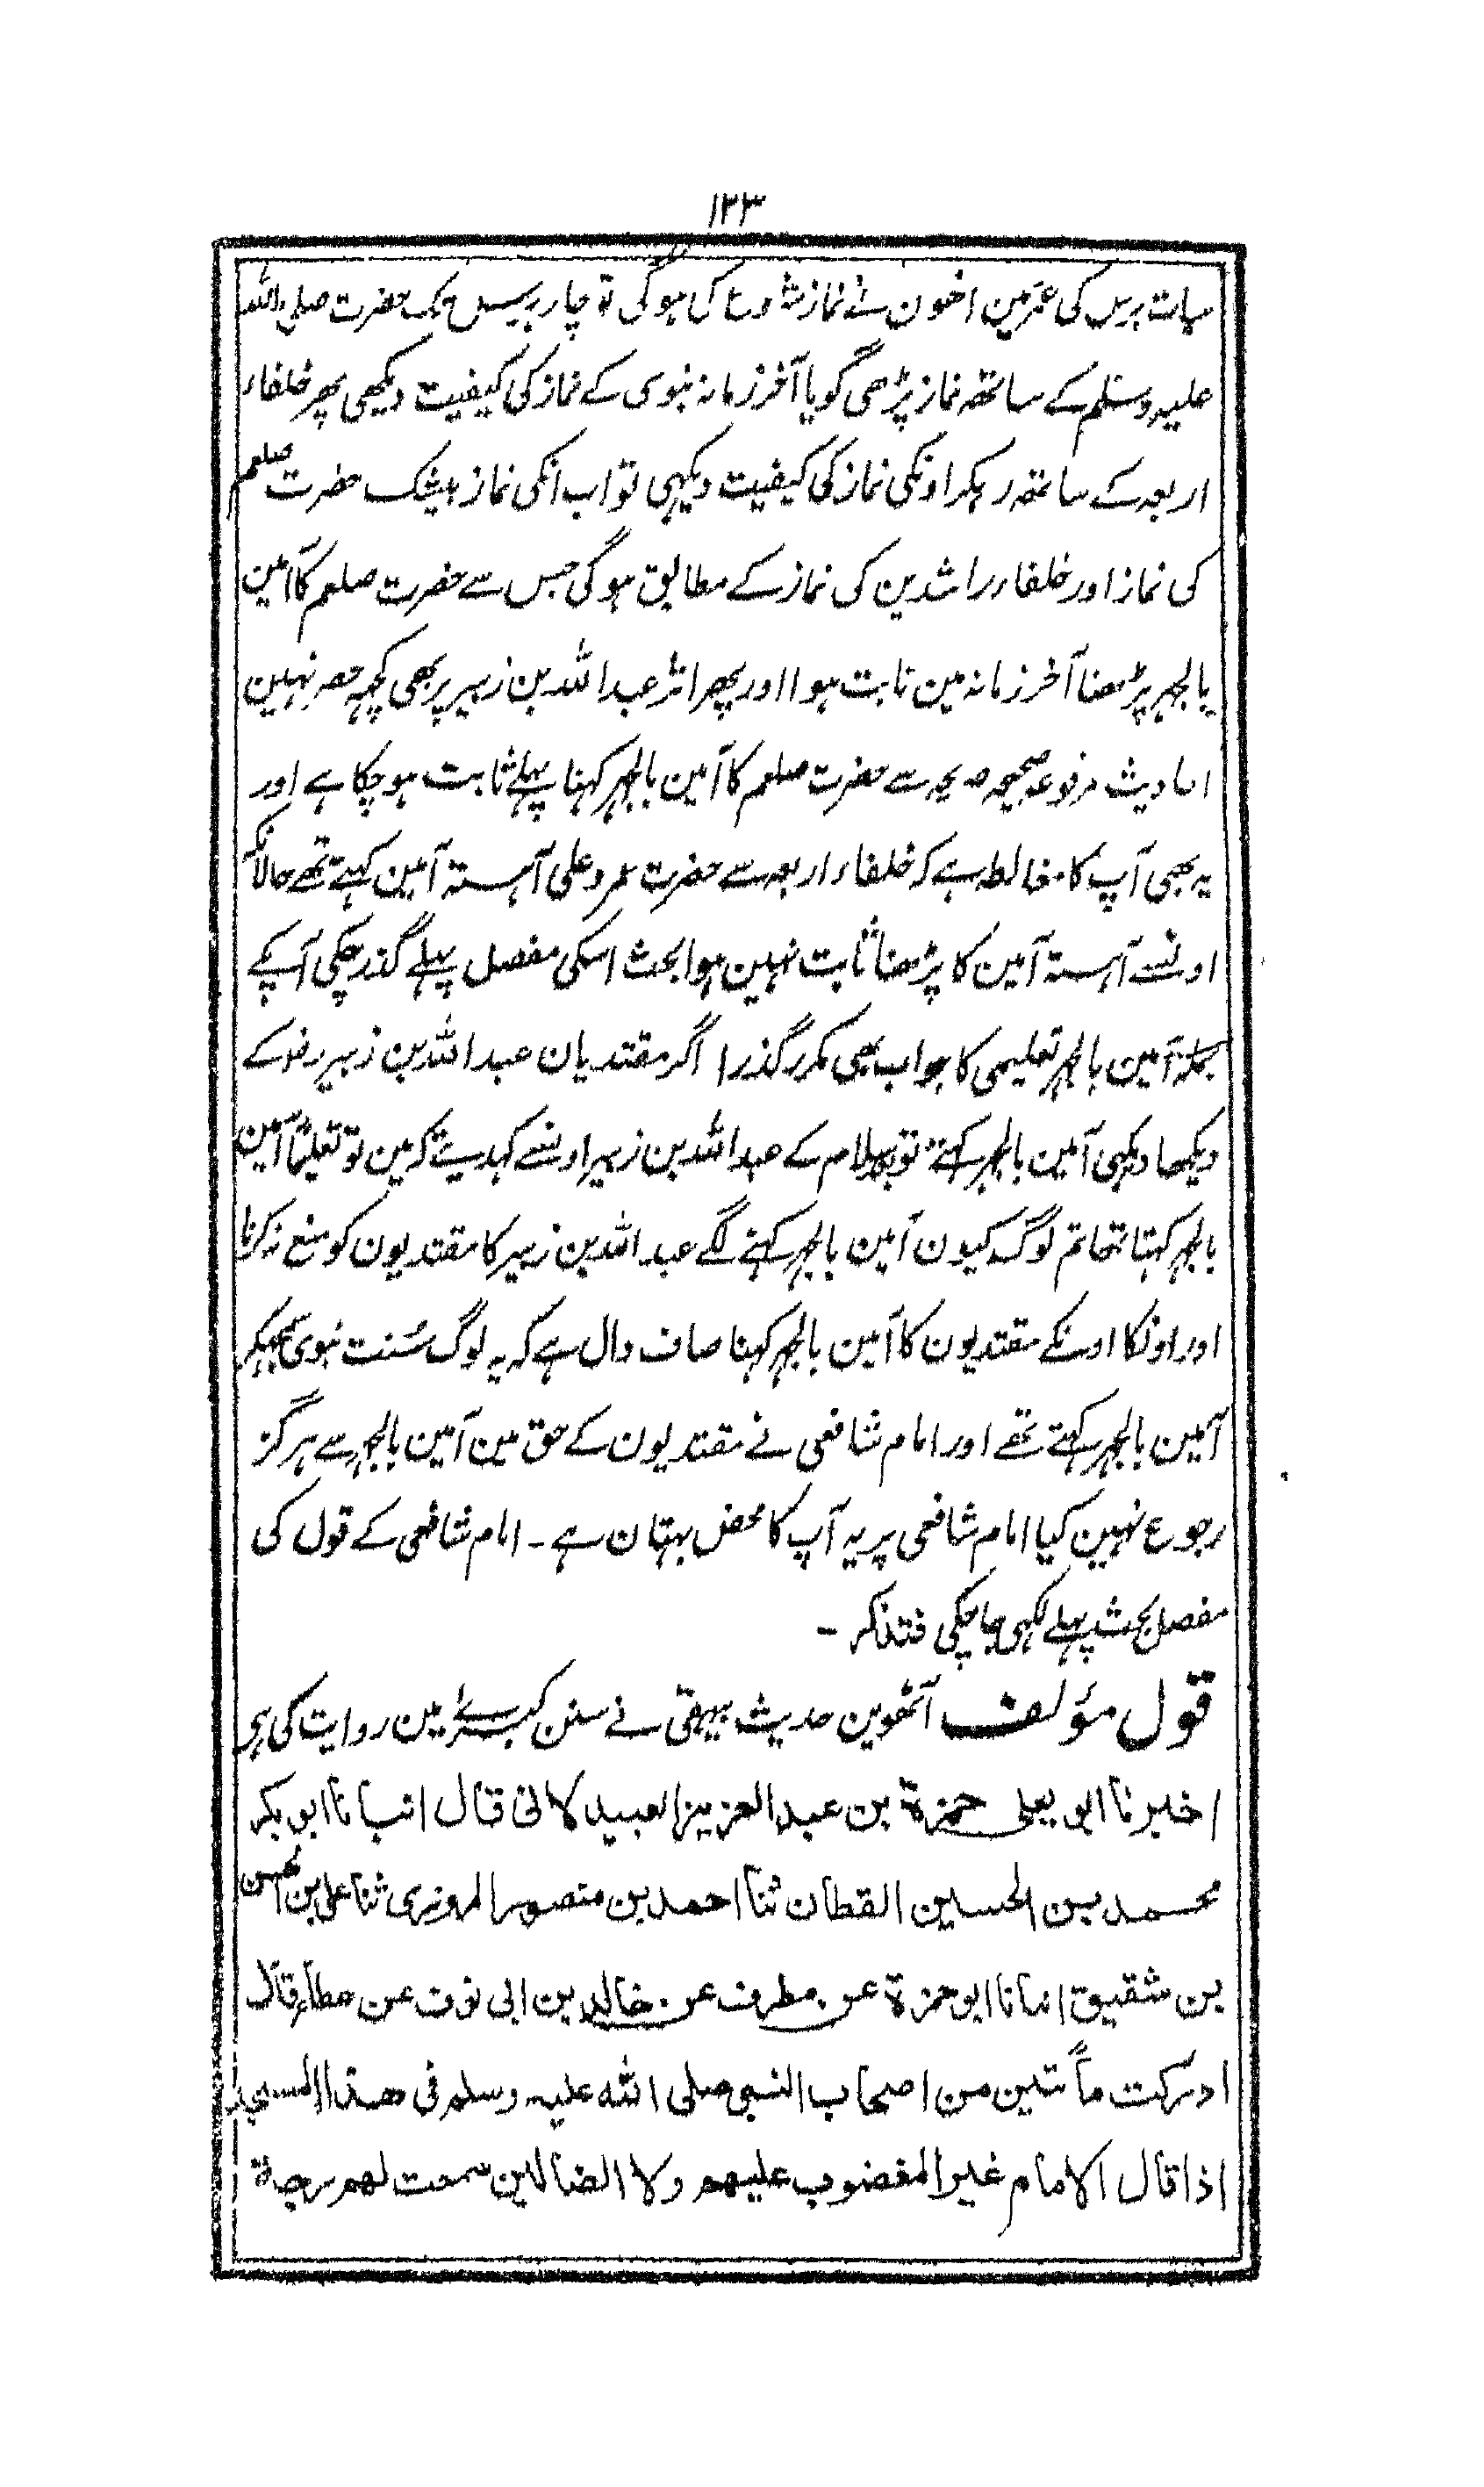 ۱۲۳
سات برس کی عمر مین انہون نے نماز شروع کی ہوگی تو چار برس تک حضرت صلی اللہ
علیہ وسلم کے ساتھ نماز پڑھی گویا آخر زمانہ نبوی کے نماز کی کیفیت دیکھی پھر خلفاء
اربعہ کے ساتھ رہکر اونکی نماز کی کیفیت دیکہی تو اب انکی نماز بیشک حضرت صلعم
کی نماز اور خلفاء راشدین کی نماز کے مطابق ہوگی جس سے حضرت صلعم کا آمین
بالجہر پڑھنا آخر زمانہ مین ثابت ہوا اور پھر اثر عبداللہ بن زبیر پر بھی کچہہ حصر نہین
احادیث مرفوعہ صحیحہ صریحہ سے حضرت صلعم کا آمین بالجہر کہنا پہلے ثابت ہوچکا ہے اور
یہ بھی آپ کا مغالطہ ہے کہ خلفاء اربعہ سے حضرت عمر و علی آہستہ آمین کہتے تھے حالانکہ
اونسے آہستہ آمین کا پڑھنا ثابت نہین ہوا بحث اسکی مفصل پہلے گذر چکی آپکے
جملہ آمین بالجہر تعلیمی کا جواب بھی مکرر گذرا اگر مقتدیان عبداللہ بن زبیر رضو کے
دیکھا دیکہی آمین بالجہر کہتے تو بعد سلام کے عبداللہ بن زبیر اونسے کہدیتے کہ مین تو تعلیماً آمین
بالجہر کہتا تھا تم لوگ کیون آمین بالجہر کہنے لگے عبداللہ بن زبیر کا مقتدیون کو منع نہ کرنا
اور اونکا اونکے مقتدیون کا آمین بالجہر کہنا صاف دال ہے کہ یہ لوگ سُنت نبوی سمجہکر
آمین بالجہر کہتے تھے اور امام شافعی نے مقتدیون کے حق مین آمین بالجہر سے ہرگز
رجوع نہین کیا امام شافعی پر یہ آپ کا محض بہتان ہے ۔ امام شافعی کے قول کی
مفصل بحث پہلے لکہی جاچکی فتذکر ۔
قول مؤلف آٹھوین حدیث بیہقی نے سنن کبریٰ مین روایت کی ہی
اخبرنا ابو یعلی حمزة بن عبد العزیز العبیدلانی قال انبانا ابو بکر
محمد بن الحسین القطان ثنا احمد بن منصور المروزی ثنا علی بن الحسن
بن شقیق انبانا ابو حمزة عن مطرف عن خالد بن ابی نوف عن عطاء قال
ادرکت مأتین من اصحاب النبی صلی اللہ علیہ وسلم فی هذا المسجد
اذا قال الامام غیر المغضوب علیهم ولا الضالین سمعت لهم رجة